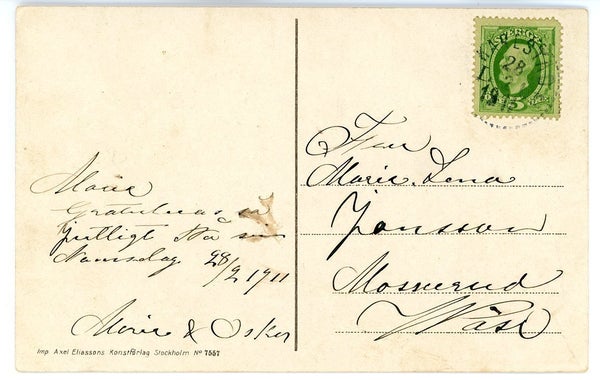 Maria
Gratuleras
hjertligt på sin
Namnsdag 28/2 1911
Maria & Oskar
Imp. Axel Eliassons Konstförlag Stockholm No 7557
SVERIGE
28
5
Fru
Maria. Lena
Jonsson
Mosserud
Wäse